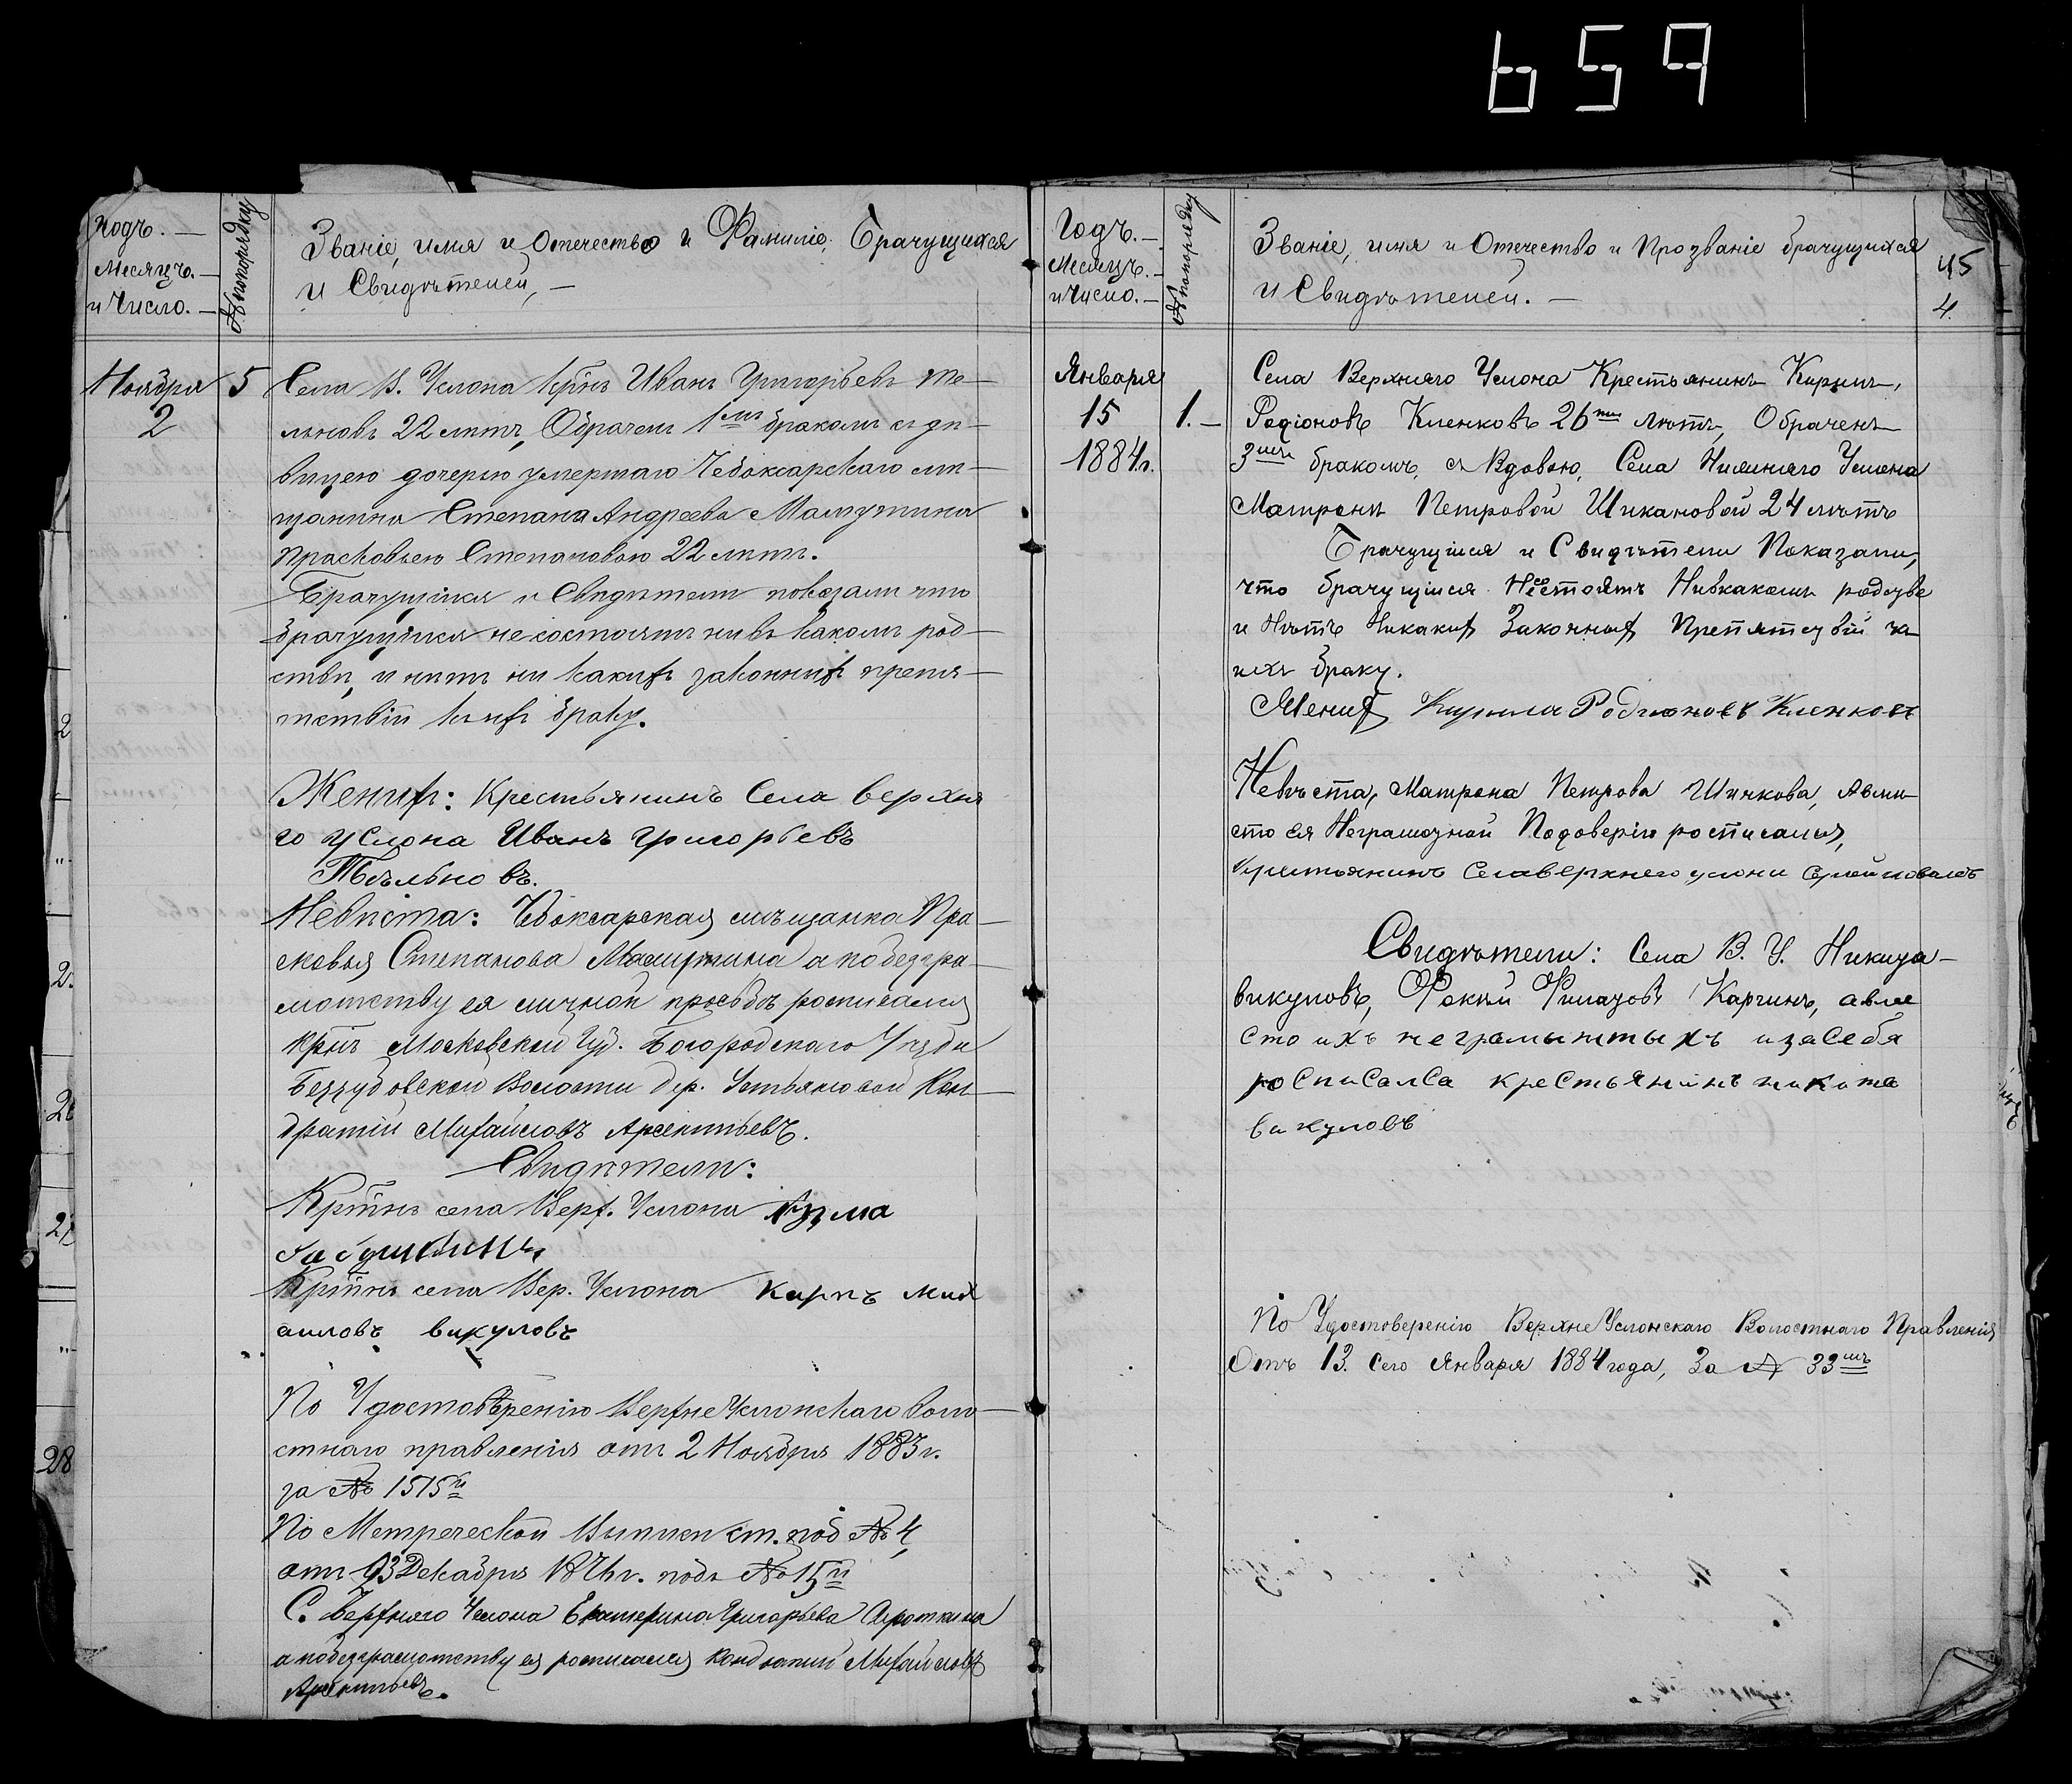 659
Годъ. —
Месяцъ. —
и Число. —
№ попорядку
Званіе, имя и Отечество и Фамилію Брачущихся
и Свидѣтелей, —
Ноября
2
5
Села В. Услона крнъ Иванъ Григорьевъ Те-
льновъ 22 лѣтъ, Обрачем 1мъ бракомъ съ дѣ-
вицею дочерью умершаго Чебоксарскаго мѣ-
щанина Степана Андреева
Прасковьею Степановою 22 лѣтъ.
Брачущіися и Свидѣтели показали что
брачущіися не состоятъ нивъ какомъ род-
ствѣ, и нѣтъ ни какихъ законныхъ препя-
тствій къ ихъ браку.
Женихъ: Крестьянинъ Села верхня
го услона Иванъ григорьевъ
Тѣльновъ.
Невѣста: Чебоксарская мѣщанка Пра-
сковья Степанова а по безгра-
мотству ея личной просьбѣ росписался
крнъ Московской Губ. Богородскаго Уѣзда
Беззубовской Волости дер. Устьяновой Кон-
дратій Михайловъ Арсентьевъ.
Свидѣтели:
Крнъ села Верх. Услона Кузма
Крнъ села Вер. Услона карпъ мих
аиловъ викуловъ
По Удостовѣренію ВерхнеУслонскаго Воло-
стнаго правленія отъ 2 Ноября 1883 г.
за № 1515й
По Метрической Выписи ст. под № 4,
Декабря подъ № 15й
С. Верхняго Услона Екатерина Григорьева Сироткина
а по безграмотству ея росписался Кондратий Михайловъ
Арсентьевъ.
Годъ. —
Месяцъ. —
и Число. —
№ попорядку
Званіе, имя и Отечество и Прозваніе брачущихся
и Свидѣтелей. —
45
4.
Января
15
1884 г.
1. —
Села Верхняго Услона Крестьянинъ Кирилъ,
Родіоновъ Кленковъ 26ти лѣтъ, Обраченъ
3мъ бракомъ, съ Вдовою, Села Нижняго Услона
Матроны Петровой Шикановой 24 лѣтъ
Брачущіися и Свидѣтели Показали,
что брачущіися Несостоятъ Нивкакомъ родстве
и Нѣтъ Никаких Законных Препятствій на
ихъ браку.
Жених Кирила Родионовъ Кленковъ
Невѣста, Матрона Петрова Шичкова, Авмѣ-
сто ея Неграмотной Подоверію росписался,
Крестьянинъ Селаверхнего услона
Свидѣтели: Села В. У. Никита
викуловъ, Фокий Филатовъ Каргинъ, авме
сто ихъ неграмытныхъ изасебя
росписалса крестьянинъ никита
викуловъ
По Удостоверенію ВерхнеУслонскаго Волостнаго Правленія
Отъ 13. Сего Января 1884 года, За № 33мъ
2
28